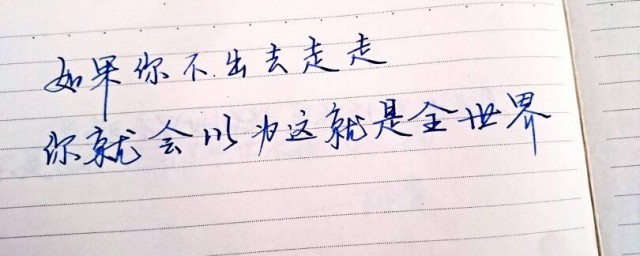 如果你不出去走走
你就会以为这就是全世界